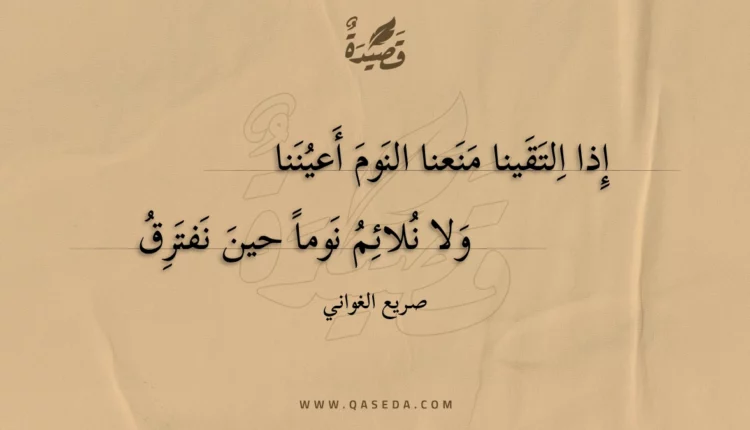 قَصِيْدَةٌ
إِذا اِلتَقَينا مَنَعنا النَومَ أَعيُنَنا
وَلا نُلائِمُ نَوماً حينَ نَفتَرِقُ
صريع الغواني
WWW.QASEDA.COM